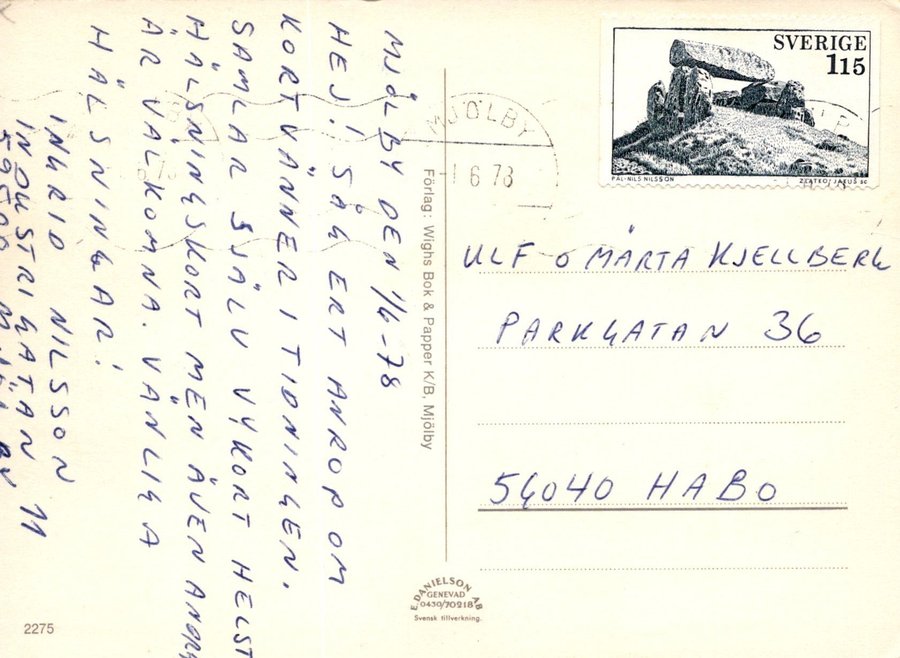 MJÖLBY DEN 1/6-78
HEJ! SÅG ERT ANROP OM
KORTVÄNNER I TIDNINGEN.
SAMLAR SJÄLV VYKORT HELST
HÄLSNINGSKORT MEN ÄVEN ANDRA
ÄR VÄLKOMNA. VÄNLIGA
HÄLSNINGAR!
INGRID NILSSON
INDUSTRIGATAN 11
59500 MJÖLBY
Förlag: Wighs Bok & Papper K/B, Mjölby
E. DANIELSON AB
GENEVAD
0430/70218
Svensk tillverkning.
2275
SVERIGE
115
PÅL-NILS NILSSON
ZLATKO JAKUS SC
MJÖLBY
1 6 78
ULF O MÄRTA KJELLBERG
PARKGATAN 36
56040 HABO